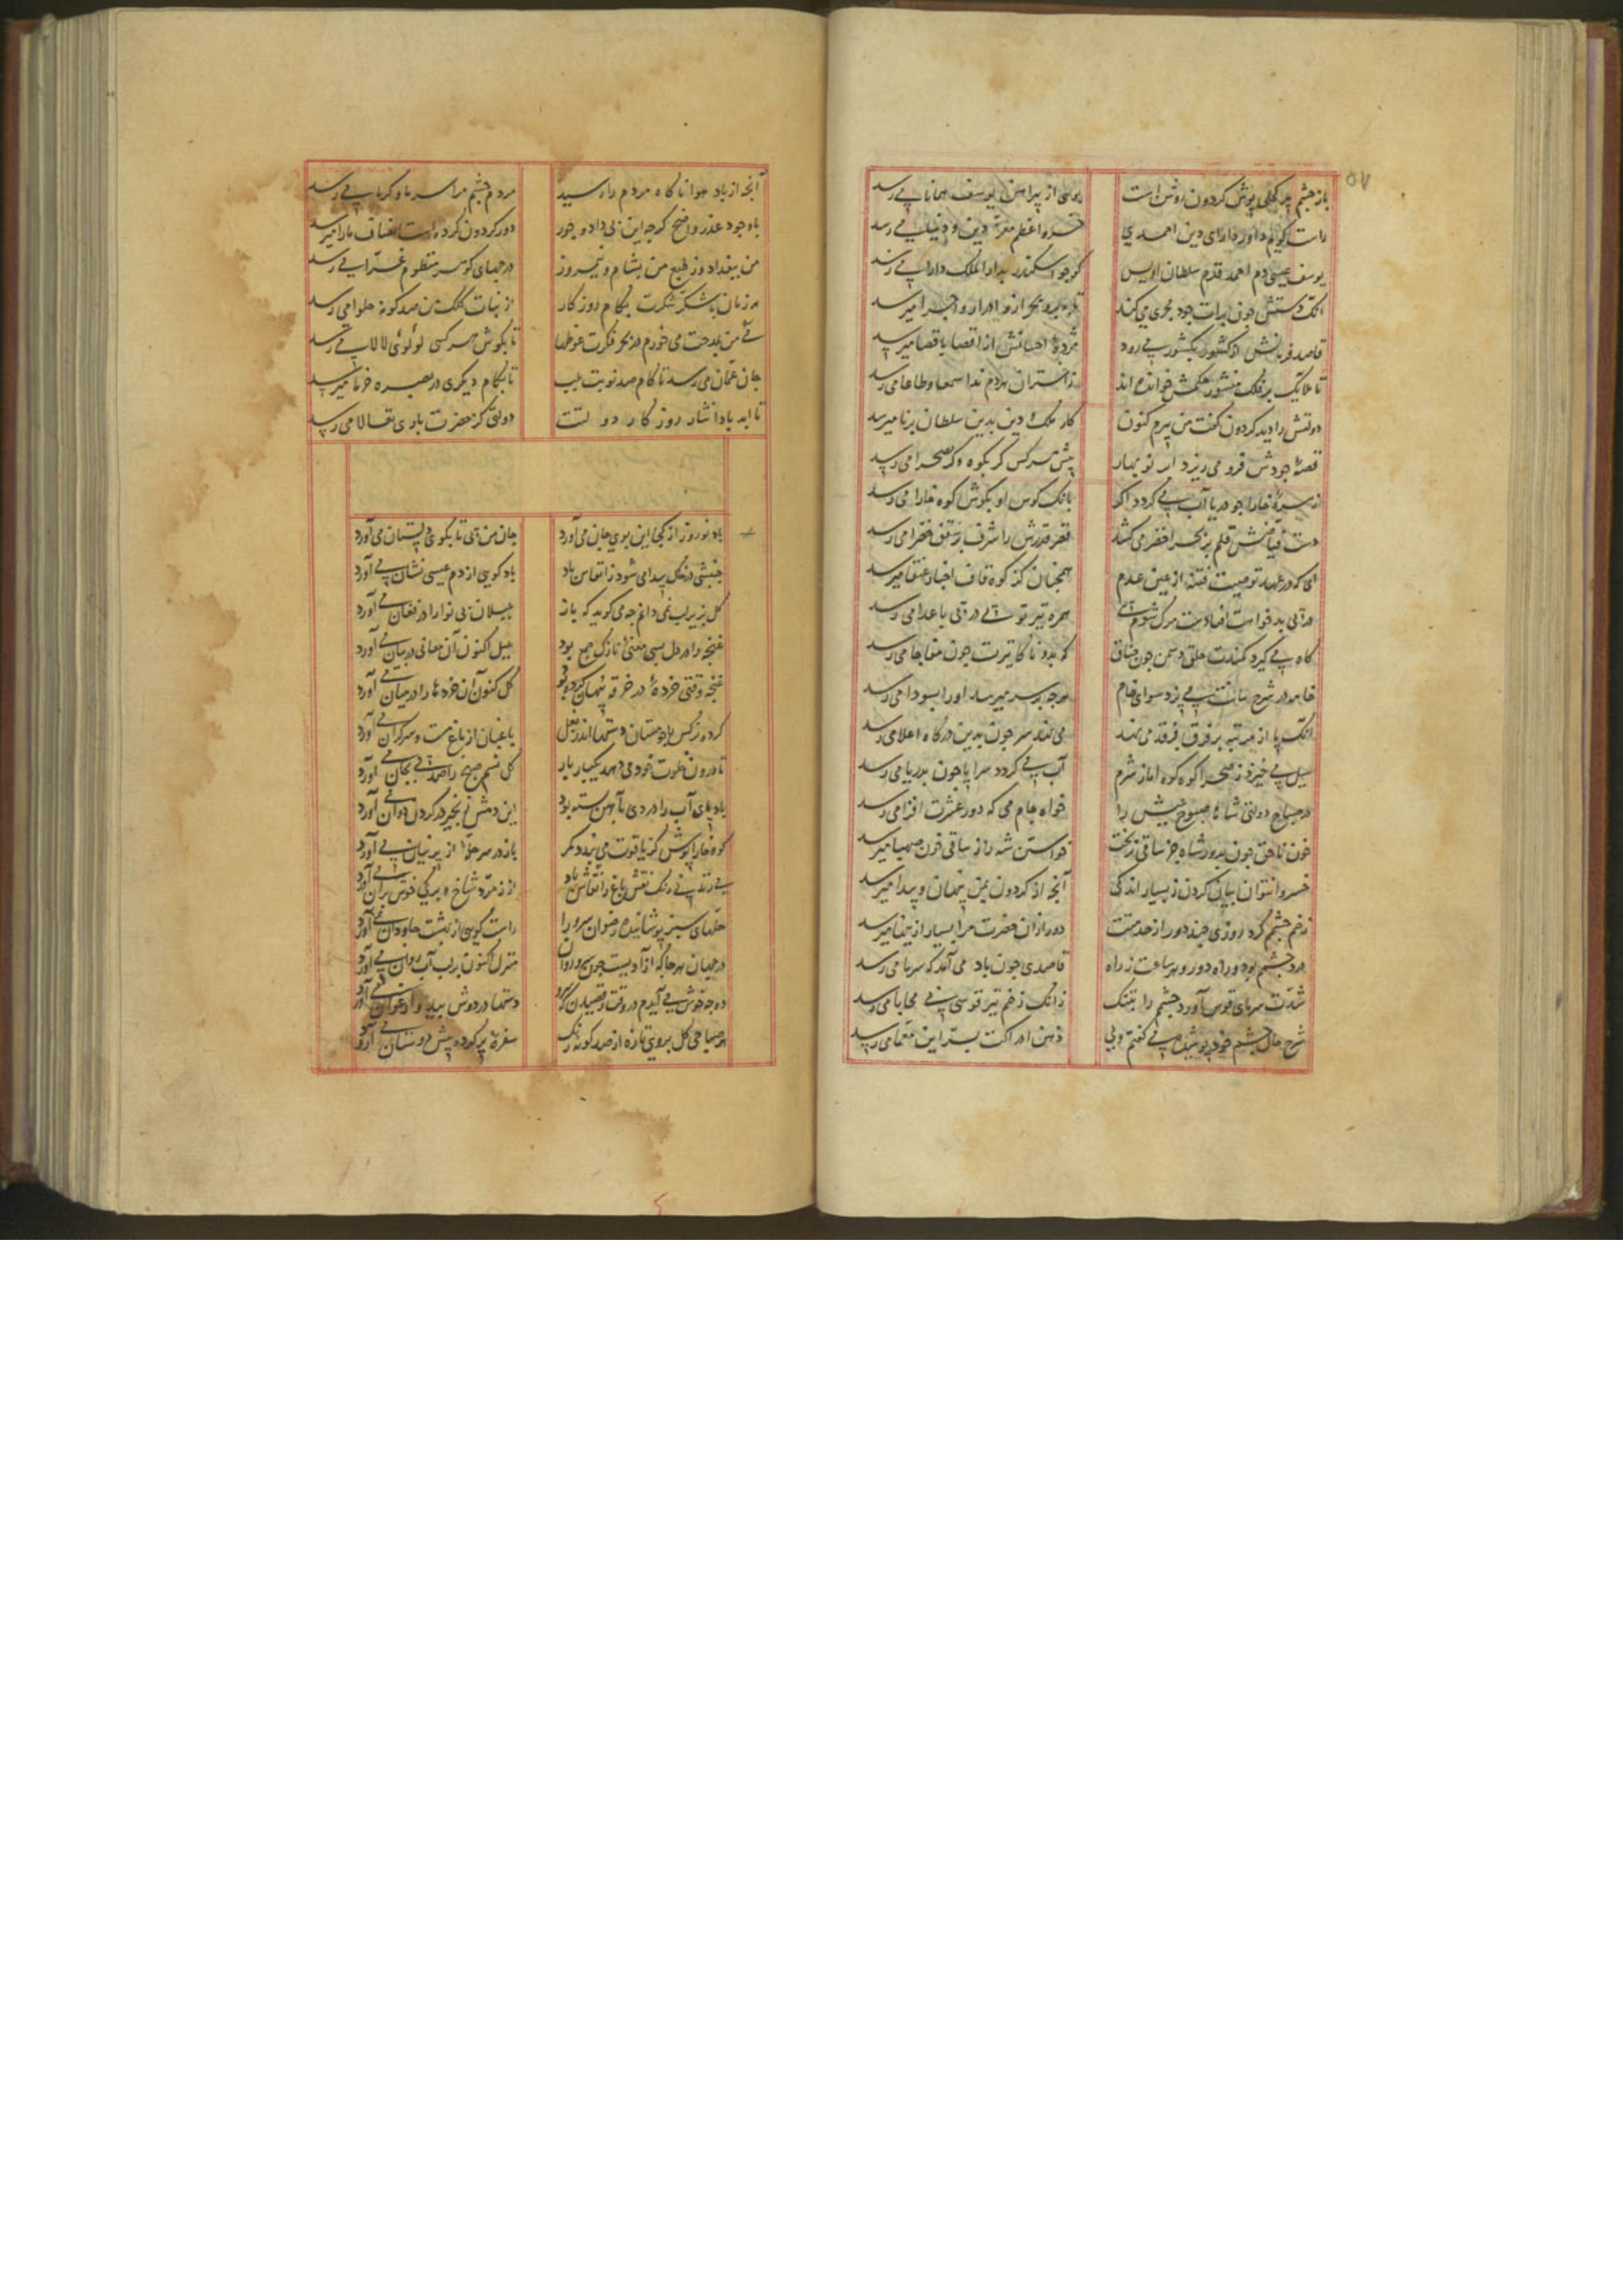 ۵۷
باز چشم پیر کحلی پوش کردون روشن است بوی از پیراهن یوسف همانا می رسد
راست کویم داور دارای دین احمدی خسرو اعظم معز دین و دنیا می رسد
یوسف عیسی دم احمد قدم سلطان اویس کوجو اسکندر بدار الملک دارا می رسد
آنک دستش چون برات جود مجری می کند
قاصد فرمانش از کشور بکشور می رود مژدهٔ احسانش از اقصا باقصا میرسد
تا ملایک بر فلک منشور حکمش خوانده اند ز اختران هردم ندا سمعا و طاعا می رسد
دولتش را دید کردون گفت من پیرم کنون کار ملک و دین بدین سلطان برنا میرسد
قصهٔ جودش فرو می ریزد ابر نو بهار پیش هر کس گر بکوه و گر بصحرا می رسد
از ستیزه خارا جو دریا آب می کردد اگر بانک کوس او بکوش کوه خارا می رسد
دست فیاضش قلم بر بحر اخضر می کشد قصر قدرش را شرف بر سقف خضرا می رسد
ای که در عهد تو صیت فتنه از عین عدم همچنان کز کوه قاف اخبار عنقا میرسد
همره تیر تو در پی باعدا می رسد
کاه می کیرد کمندت حلق دشمن چون خناق که بدو ناکا تیرت چون مفاجا می رسد
خامه در شرح بیانت می پزد سودای خام هرچه بر سر میرسد او را بسودا می رسد
آنک پا از مرتبه بر فرق فرقد می نهد می نهد سر چون بدین درگاه اعلا می رسد
سیل می خیزد ز صحرا کوه کوه اما ز شرم آب می کردد سراپا چون بدریا می رسد
در صباح دولتی شاها صبوح عیش را خواه جام می که دور عشرت افزا می رسد
خون ناحق چون بدور شاه جز ساقی نریخت خواستن شه را ز ساقی خون صهبا میرسد
خسروا نتوان بیان کردن ز بسیار اندکی آنچه از کردون بمن پنهان و پیدا میرسد
زخم چشمم کرد روزی چند دور از خدمتت دور ازان حضرت مرا بسیار ازینها میرسد
درد چشمم بود و راه دور و هر ساعت ز راه قاصدی چون باد می آمد که سرما می رسد
شدت سرمای قوس آورد چشمم را بتنک زانک زخم تیر قوسی بی محابا می رسد
شرح حال چشم خود پوشیده می کفتم ولی ذهن ادراکت بسر این معما می رسد
آنچه از باد هوا ناگاه مردم را رسید مردم چشم مرا سرما و گرما می رسد
باوجود عذر واضح گرچه این بی داد و جور دور کردون کرده است انصاف ما را میرسد
من ببغداد و ز طبع من بشام و نیمروز در جهای گوهر منظوم غرا می رسد
هر زمان با شکر شکرت بکام روز کار از نبات کلک من صد کونه حلوا می رسد
نی من بمدحت می خورم در بحر فکرت غوطها تا بکوش هر کسی لولوئی لالا می رسد
جان عمان می رسد تا کام صد نوبت بلب تا بکام دیکری در بصره خرما میرسد
تا ابد بادا نثار روز کار دولتت دولتی کز حضرت باری تعالا می رسد
باد نوروز از کجا این بوی جان می آورد جان من پی تا بکوی دلستان می آورد
جنبشی در گل پیدا می شود ز انفاس باد باد کویی از دم عیسی نشان می آورد
گل بزیر لب نمی دانم چه می کوید که باز بلبلان بی نوا را در فغان می آورد
غنچه را در دل بسی معنئ نازک جمع بود بلبل اکنون آن معانی در بیان می آورد
غنچه وقتی خردهٔ در خرقه پنهان کرده بود گل کنون آن خردها را در میان می آورد
کرده نرکس چو مستان دستها اندر بغل باغبان از باغ مست و سرکران می آورد
تا درون خلوت خود می دهد یکبار بار گل نسیم صبح را صد پی بجان می آورد
باد پای آب را در دی بآهن بسته بود این دمش زنجیر در کردن دوان می آورد
کوه خارا پوش کز یاقوت می بندد کمر باز در سر حله از پرنیان می آورد
بی رنک نقش باغ را نقاش باد از زمرد شاخ و برک
حلهای سبز پوشانیده رضوان سرو را راست کویی از بهشت جاودان می آورد
در جهان هرجا که آزادیست چون سرو روان منزل اکنون بر لب آب روان می آورد
ده چه خوش می آیدم در وقت رقصیدن که دستها در دوش بید و ارغوان می آورد
هر صباحی گل بروی تازه از صد کونه رنک سفرهٔ پر کرده پیش دوستان می آورد